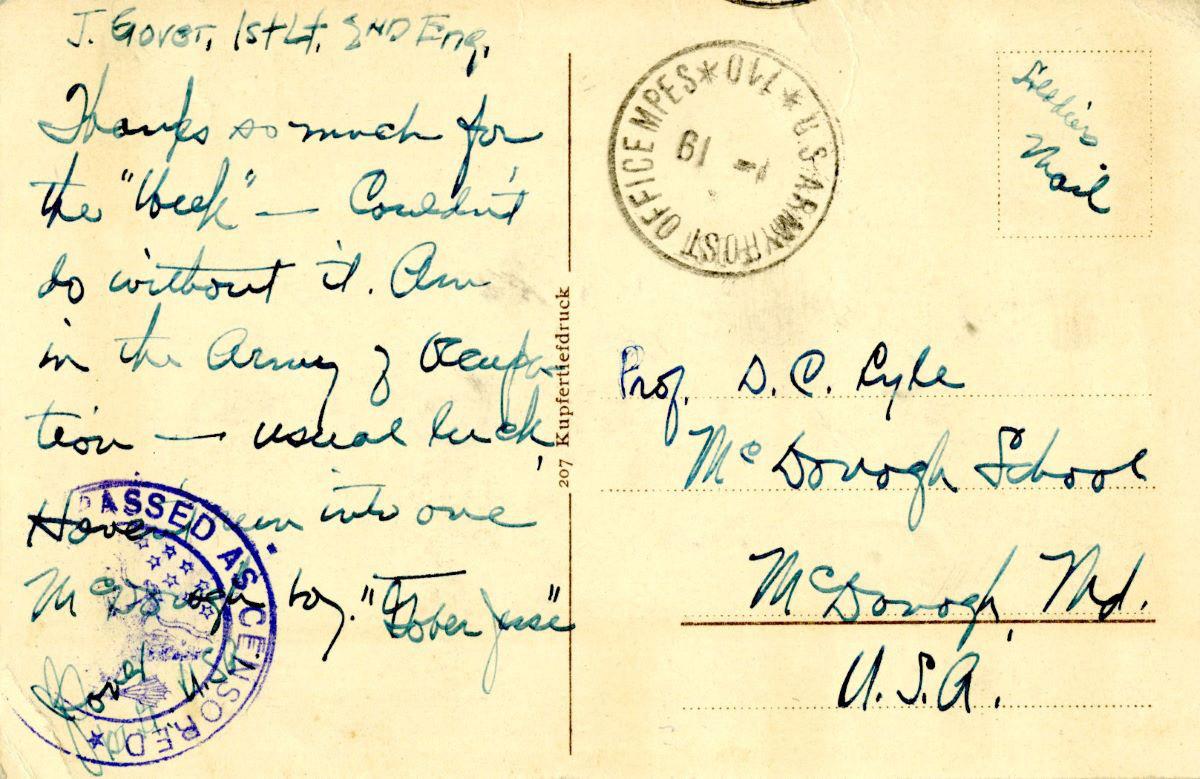 J. Gover, 1st Lt, 2ND Eng.
Thanks so much for
the "Week" — Couldn't
do without it. Am
in the Army of Occupa-
tion — usual luck,
Haven't run into one
McDonogh boy. "Gover
Gover
U.S.A
PASSED AS CENSORED
207 Kupfertiefdruck
* U.S. ARMY POST OFFICE MPES * 710
1 - 19
Soldiers
Mail
Prof. D. C. Lyle
McDonogh School
McDonogh, Md.
U.S.A.